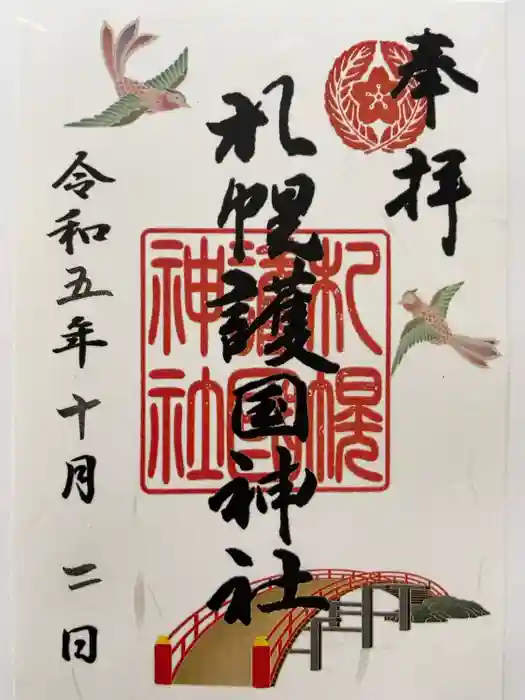 奉拝
札幌護国神社
札幌
護国
神社
令和五年十月二日